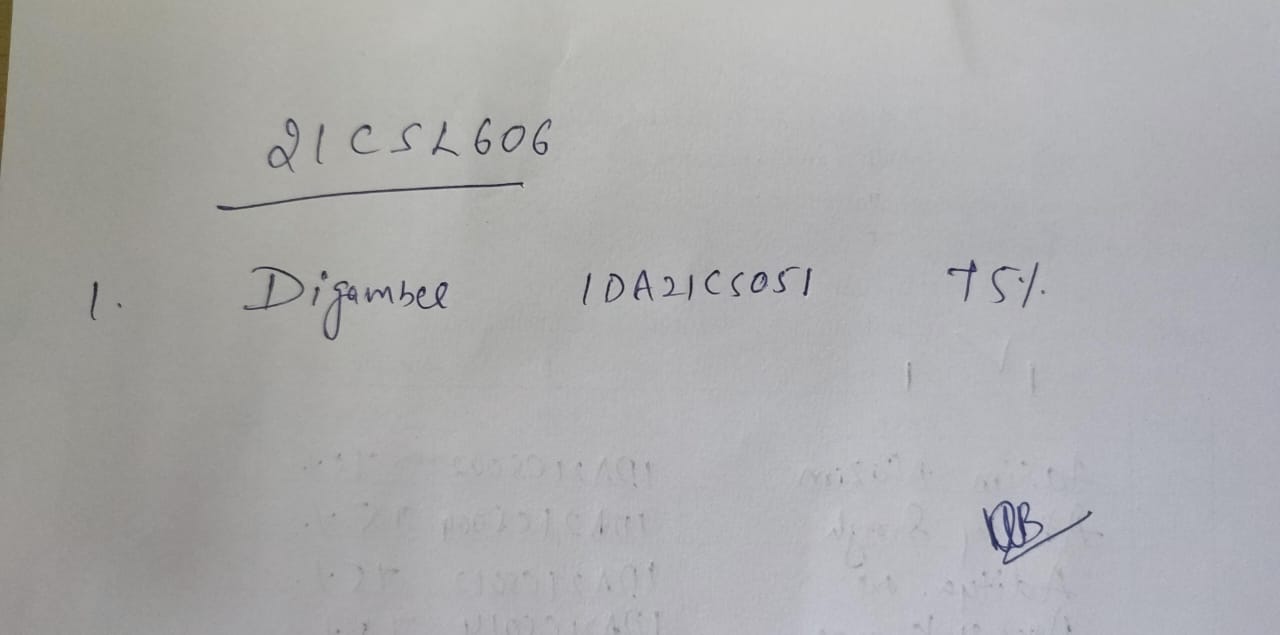 21CSL606
1. Digambee 1DA21CS051 75%